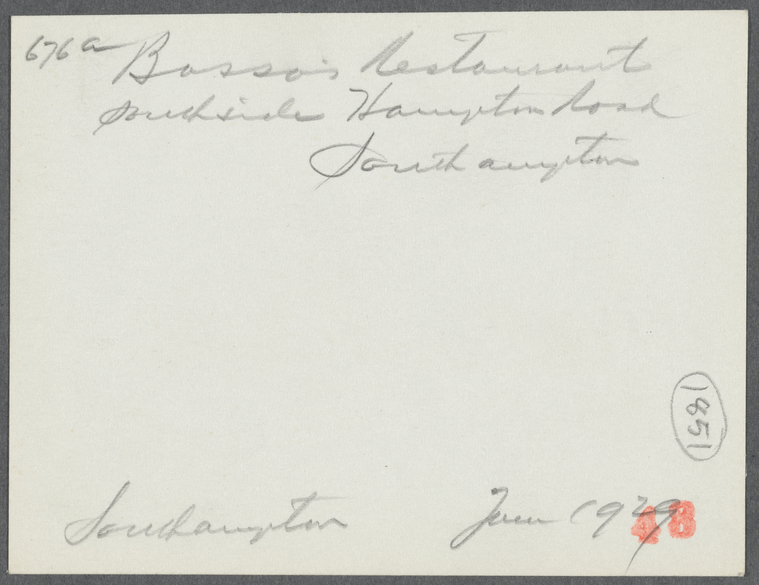 676a Basso's Restaurant
southside Hampton Road
Southampton
1851
Southampton June 1929
48